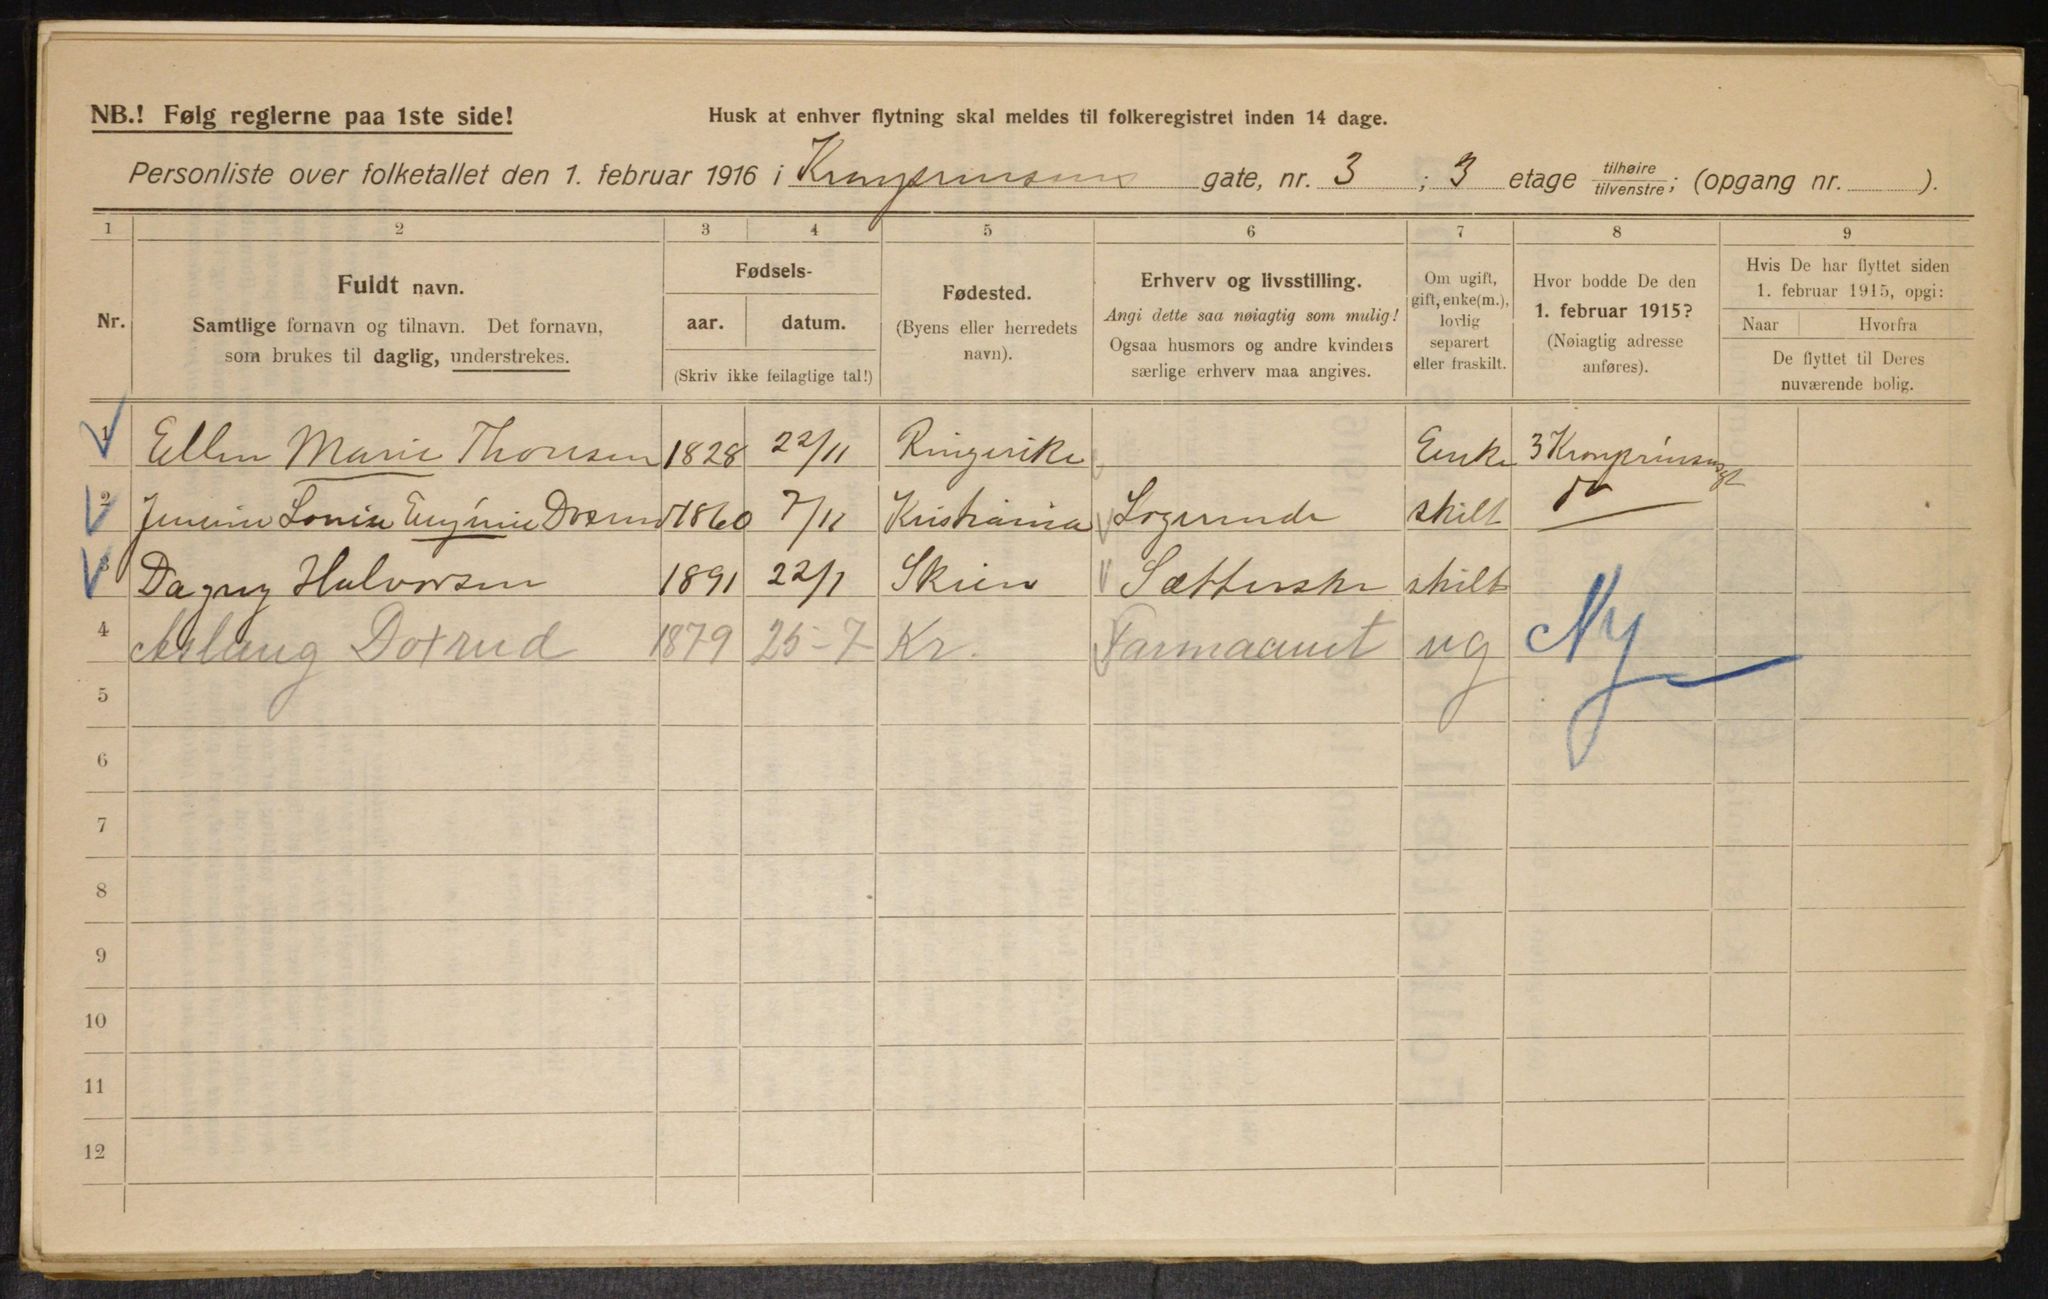 NB.! Følg reglerne paa 1ste side!
Husk at enhver flytning skal meldes til folkeregistret inden 14 dage.
Personliste over folketallet den 1. februar 1916 i Kronprinsens gate, nr. 3 ; 3 etage tilhøire tilvenstre; (opgang nr. ).
1 2 3 4 5 6 7 8 9
Nr.
Fuldt navn.
Samtlige fornavn og tilnavn. Det fornavn,
som brukes til daglig, understrekes.
Fødsels-
aar. datum.
(Skriv ikke feilagtige tal!)
Fødested.
(Byens eller herredets
navn).
Erhverv og livsstilling.
Angi dette saa nøiagtig som mulig!
Ogsaa husmors og andre kvinders
særlige erhverv maa angives.
Om ugift,
gift, enke(m.),
lovlig
separert
eller fraskilt.
Hvor bodde De den
1. februar 1915?
(Nøiagtig adresse
anføres).
Hvis De har flyttet siden
1. februar 1915, opgi:
Naar Hvorfra
De flyttet til Deres
nuværende bolig.
1 Ellen Marie Thoresen 1828 22/11 Ringerike Enke 3 Kronprinsensgt
2 Louise Eugenie 1860 7/11 Kristiania Logerende skilt do
3 Dagny Halvorsen 1891 22/1 Skien Sætterske skilt
4 Aslaug Doxrud 1879 25-7 Kr. Farmaceut ug Ny
5
6
7
8
9
10
11
12